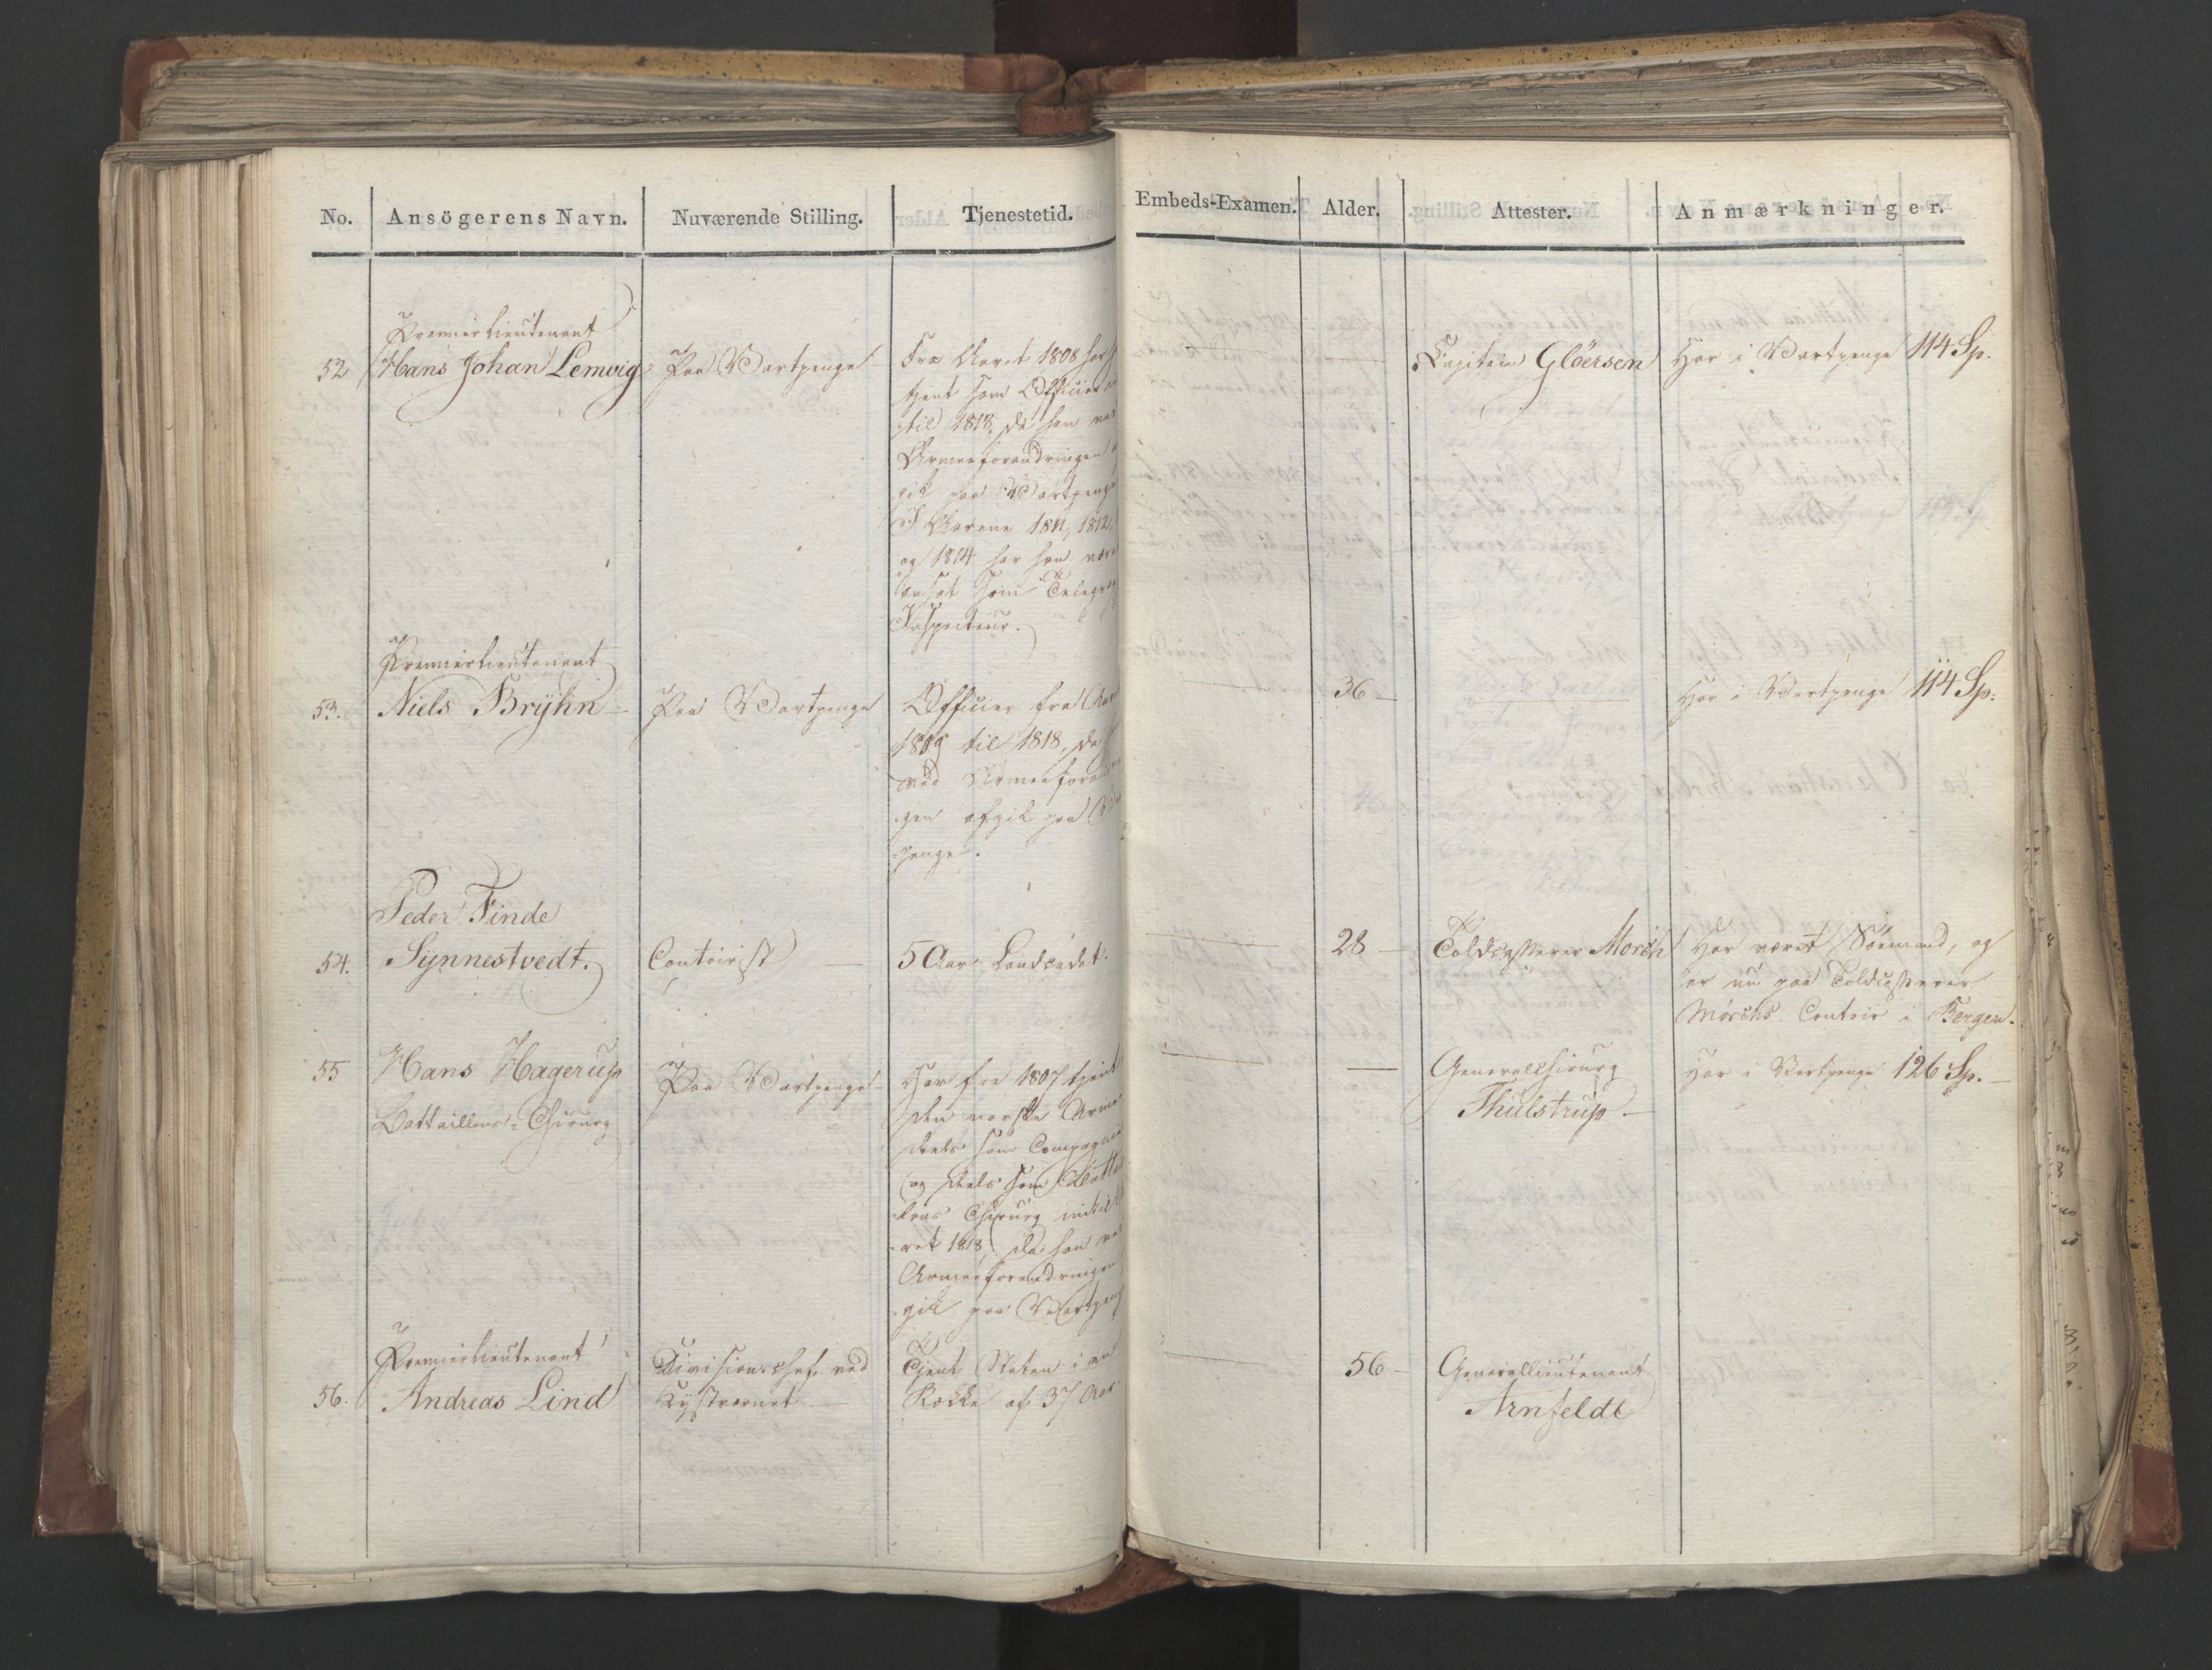 No. Ansögerens Navn. Nuværende Stilling. Tjenestetid. Embeds-Examen. Alder. Attester. Anmærkninger.
Premierlieutenant
52 Hans Johan Lemvig Paa Vartpenge Fra Aaret 1808 har
tjent som Officier
til 1818, da han
Armeeforandringen
gik paa Vartpenge
I Aarene 1811, 1812,
og 1814 har han
ansat som
Inspecteur.
— Capitain Glöersen Har i Vartpenge 114 Sp.
Premierlieutenant
53. Niels Brÿhn Paa Vartpenge Officier fra
1809 til 1818, da
ved
gen afgik paa
penge.
— 36 — Har i Vartpenge 114 Sp.
Peder Finde
54. Synnestvedt. Contoirist — 5 Aar Landcadet.
— 28 — Toldcasserer Morch Har været Sömand, og
er nu paa Toldcasserer
Mörchs Contoir i Bergen.
55 Hans Hagerup Paa Vartpenge Har fra 1807 tjent
Battaillons-Chirurg den norske
deels som
og deels som
Chirurg indtil
ret 1818, da han
Armeeforandringen
gik paa
— — Generalchirurg Har i Vartpenge 126 Sp. —
Thulstrup. —
Premierlieutenant Divisions-Chef ved Tjent Staten i en
56. Andreas Lind Kystværnet — Række af 37 Aar
— 56 — Generallieutenant
Arnfeldt